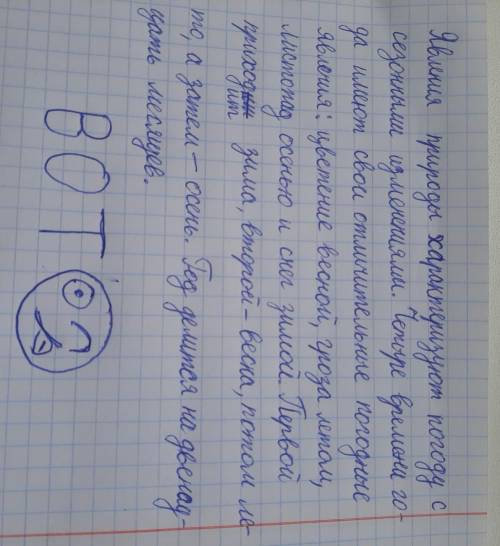 Явления природы характеризуют погоду с
сезонными изменениями. Четыре времени го-
да имеют свои отличительные погодные
явления: цветение весной, гроза летом,
листопад осенью и снег зимой. Первой
приходит зима, второй - весна, потом ле-
то, а затем - осень. Год делится на двенад-
цать месяцев.
ВОТ